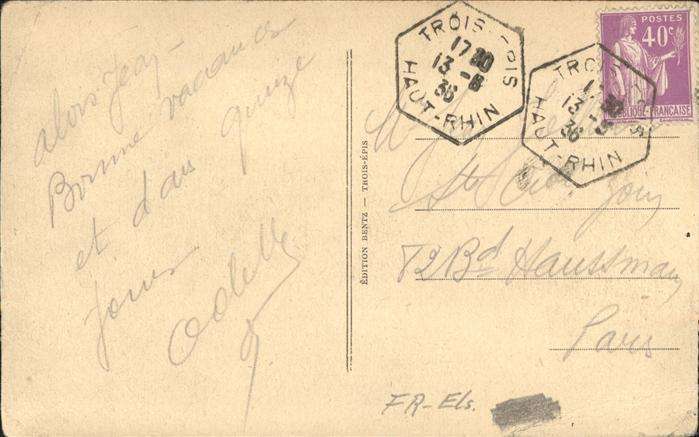 alors Jean-
Bonne vacances
et dans quinze
jours
Odette
ÉDITION BENTZ — TROIS-ÉPIS
TROIS-EPIS
17 30
13 -8
36
HAUT-RHIN
POSTES
40c
FRANÇAISE
TROIS
13 -8
36
HAUT-RHIN
72 Bd Haussmann
Paris
FR-Els.